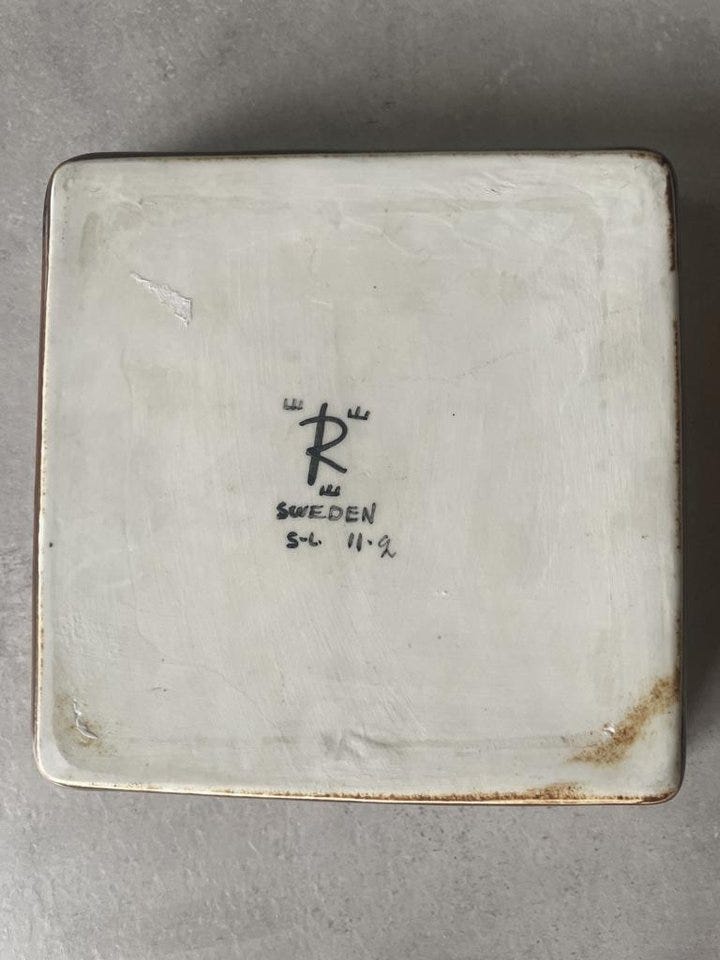 R
SWEDEN
S-L 11-9